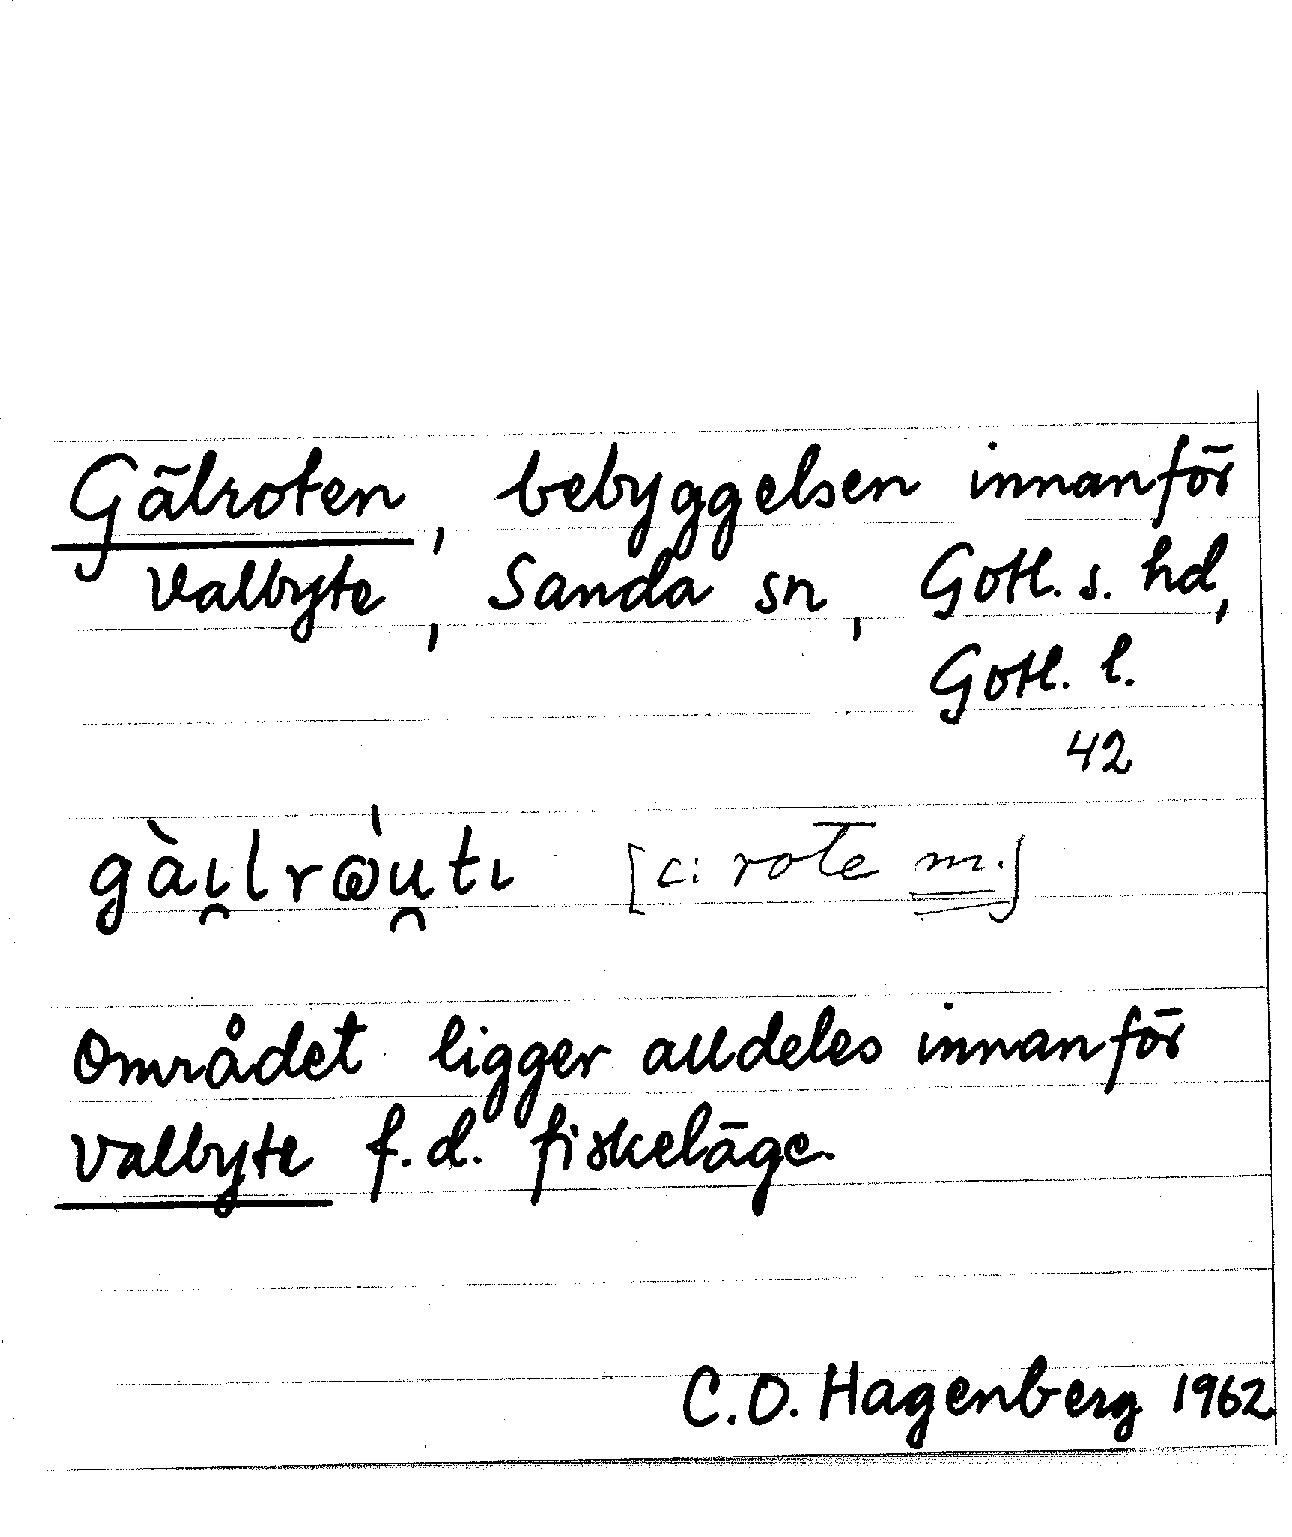 Gälroten, bebyggelsen innanför
Valbyte, Sanda sn, Gotl. s. hd,
Gotl. l.
42
gàı̯lrω̇u̯tı [c: rote m.]
Området ligger alldeles innanför
Valbyte f.d. fiskeläge
C.O. Hagenberg 1962